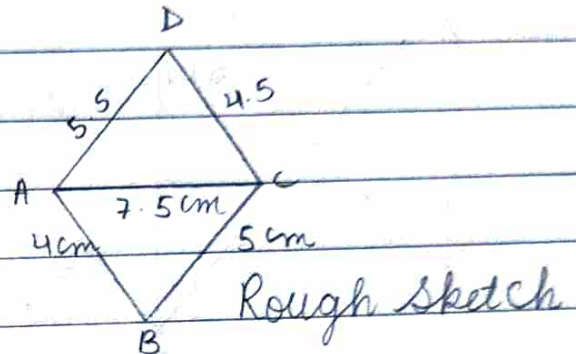 D
5.5
4.5
A
C
7.5cm
4cm
5cm
Rough Sketch
B